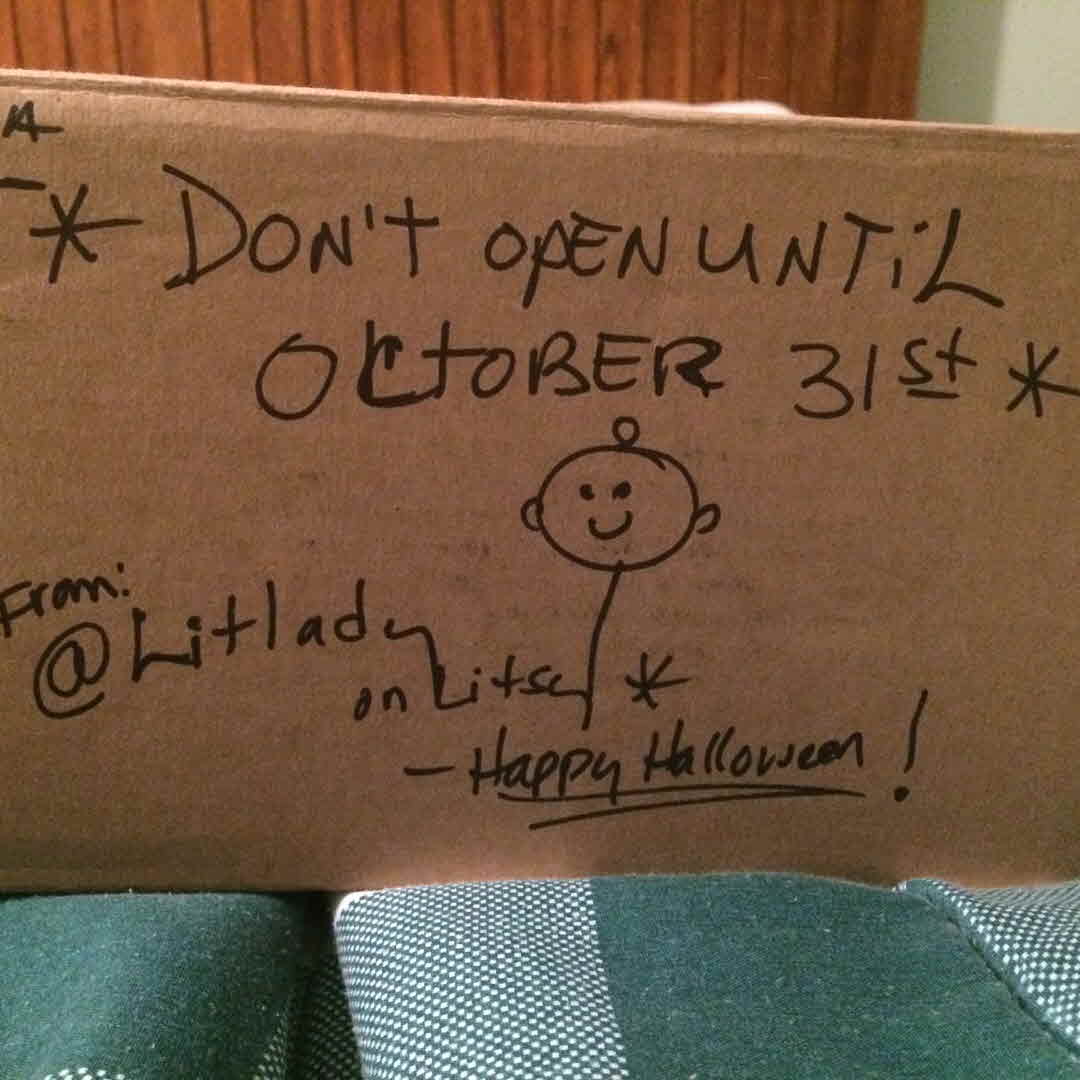 * DON'T OPEN UNTiL
OCTOBER 31st *
From:
@Litlady
on Litsy *
- Happy Halloween!